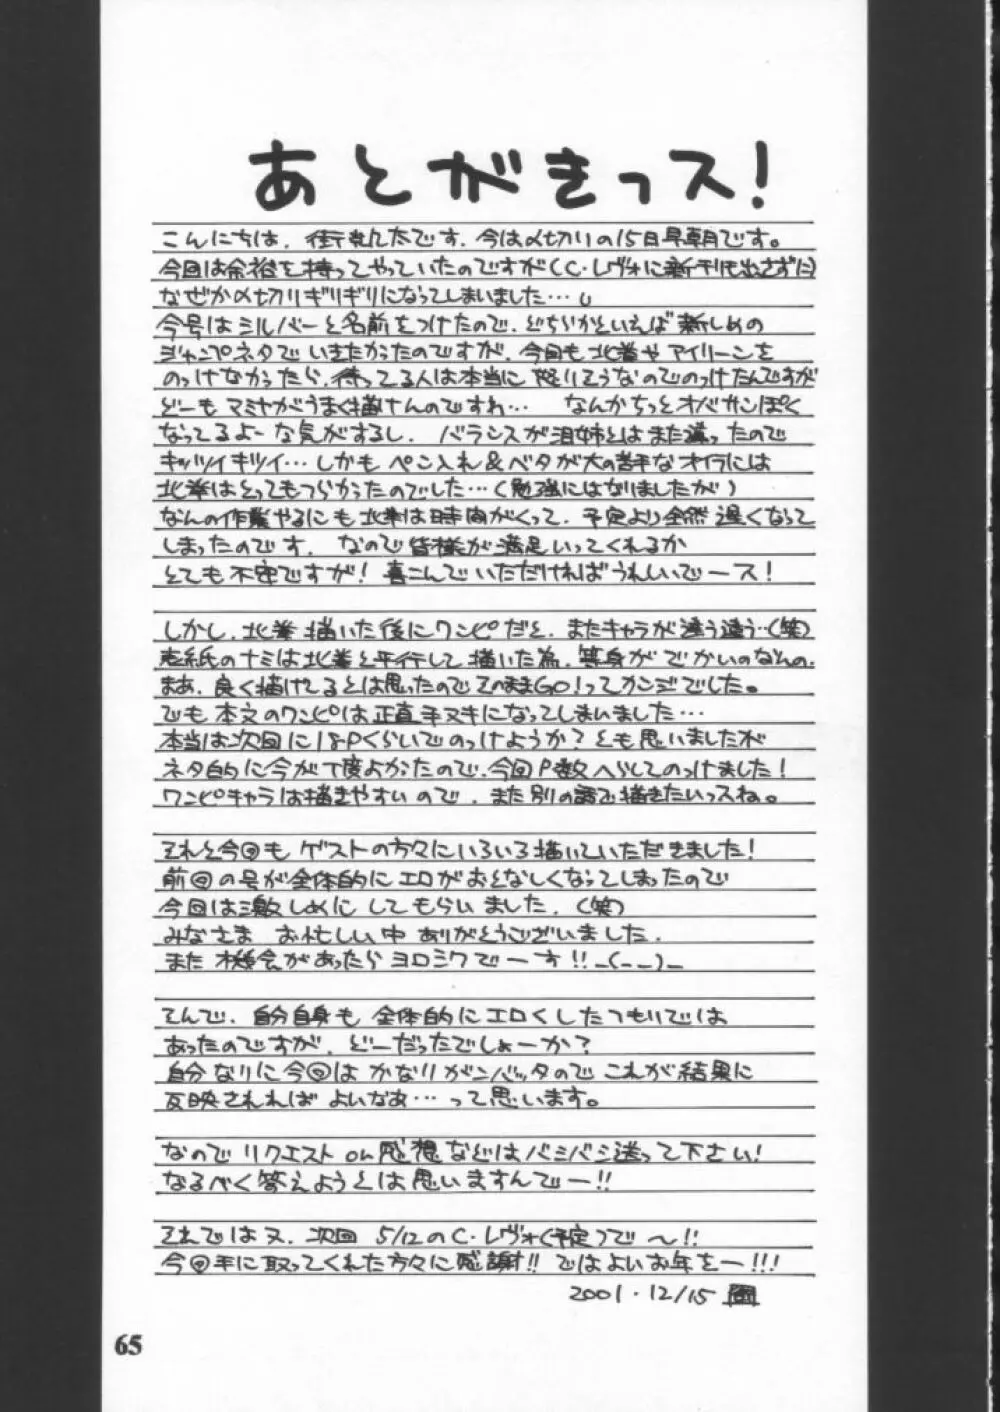 あとがきっス!
こんにちは、街です。今は〆切りの15日早朝です。
今回は余裕を持ってやっていたのですが(C・レヴォに新刊も出さずに)
なぜか〆切りギリギリになってしまいました…
今号はシルバーと名前をつけたので、どちらかといえば新しめの
ジャンプネタでいきたかったのですが、今回も北斗やアイリーンを
のっけなかったら、待ってる人は本当に怒りそうなのでのっけたんですが
どーもマミヤがうまく描けんのですわ… なんかちっとオバサンぽく
なってるよーな気がするし、バランスが泪姉とはまた違ったので
キッツイキツイ…しかもペン入れ&ベタが大の苦手なオイラには
北斗はとってもつらかったのでした…(勉強にはなりましたが)
なんの作業やるにも北斗は時間がくって、予定より全然遅くなって
しまったのです。なので皆様が満足いってくれるか
とても不安ですが!喜こんでいただければうれしいでース!
しかし、北斗描いた後にワンピだと、またキャラが違う違う…(笑)
表紙のナミは北斗と平行して描いた為、等身がでかいのなんの。
まあ、良く描けてるとは思ったのでそのままGO!ってカンジでした。
でも本文のワンピは正直手ヌキになってしまいました…
本当は次回に18Pくらいでのっけようか?とも思いましたが
ネタ的に今が丁度よかったので、今回P数へらしてのっけました!
ワンピキャラは描きやすいので、また別の話で描きたいっスね。
それと今回もゲストの方々にいろいろ描いていただきました!
前回の号が全体的にエロがおとなしくなってしまったので
今回は激しめにしてもらいました。(笑)
みなさまお忙しい中ありがとうございました。
また機会があったらヨロシクでーす!!_(_ _)_
そんで、自分自身も全体的にエロくしたつもりでは
あったのですが、どーだったでしょーか?
自分なりに今回はかなりガンバッタのでこれが結果に
反映されればよいなあ…って思います。
なのでリクエストor感想などはバシバシ送って下さい!
なるべく答えようとは思いますんでー!!
それでは又、次回 5/12のC・レヴォ(予定)で〜!!
今回手に取ってくれた方々に感謝!!ではよいお年をー!!!
2001.12/15
65